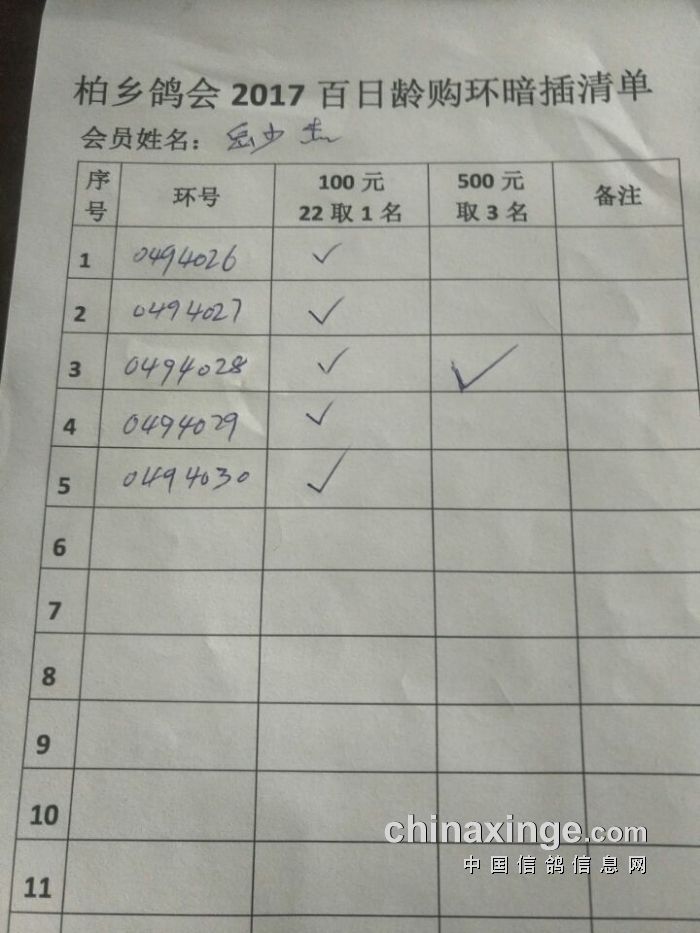 柏乡鸽会 2017 百日龄购环暗插清单
会员姓名：
序号 环号 100 元 22 取 1 名 500 元 取 3 名 备注
1 0494026 ✓
2 0494027 ✓
3 0494028 ✓ ✓
4 0494029 ✓
5 0494030 ✓
6
7
8
9
10
11
chinaxinge.com
中国信鸽信息网